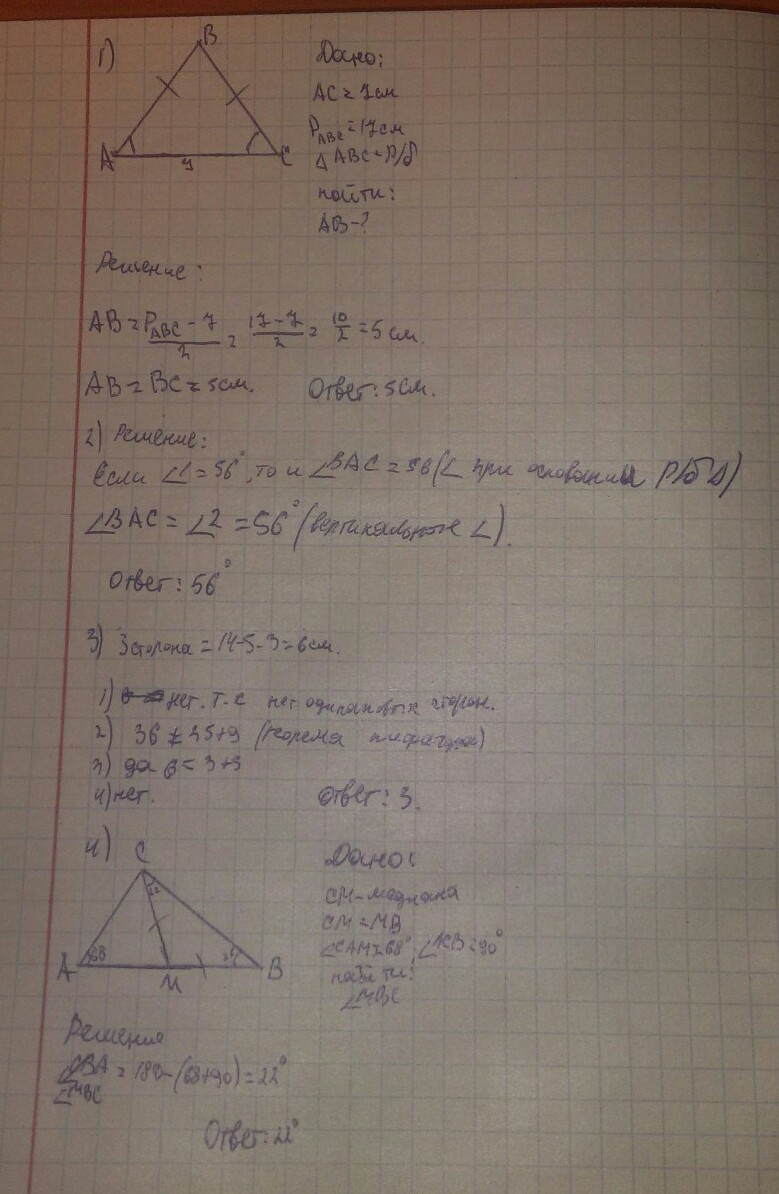 1)
B
A
C
7
Дано:
AC = 7см
P ABC = 17см
Δ ABC - р/б
найти:
AB - ?
Решение:
AB = P ABC - 7 / 2 = 17 - 7 / 2 = 10 / 2 = 5 см.
AB = BC = 5см. Ответ: 5см.
2) Решение:
Если ∠1 = 56°, то и ∠BAC = 56 (∠ при основании р/б Δ)
∠BAC = ∠2 = 56° (вертикальные ∠).
Ответ: 56°
3) 3 сторона = 14-5-3 = 6см.
1) нет. т.с нет одинаковых сторон.
2) 36 ≠ 25+9 (теорема пифагора)
3) да 6 = 3+3
4) нет. Ответ: 3.
4)
C
A
68
M
B
Дано:
CM - медиана
CM = MB
∠CAM = 68°; ∠ACB = 90°
найти:
∠MBC
Решение
∠CBA = 180 - (68+90) = 22°
∠MBC
Ответ: 22°